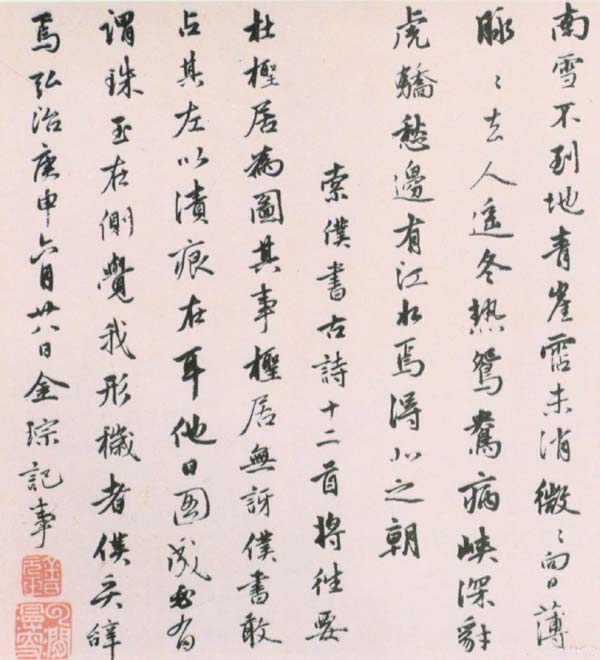 南雪不到地青崖霑未消微〻向日薄
脉〻去人遥冬熱鴛鴦病峽深豺
虎驕愁邊有江水焉得北之朝
索僕書古詩十二首將往要
杜檉居為圖其事檉居無訝僕書敢
占其左以漬痕在耳他日圖成必有
謂珠玉在側覺我形穢者僕奚辭
焉弘治庚申六月廿八日金琮記事